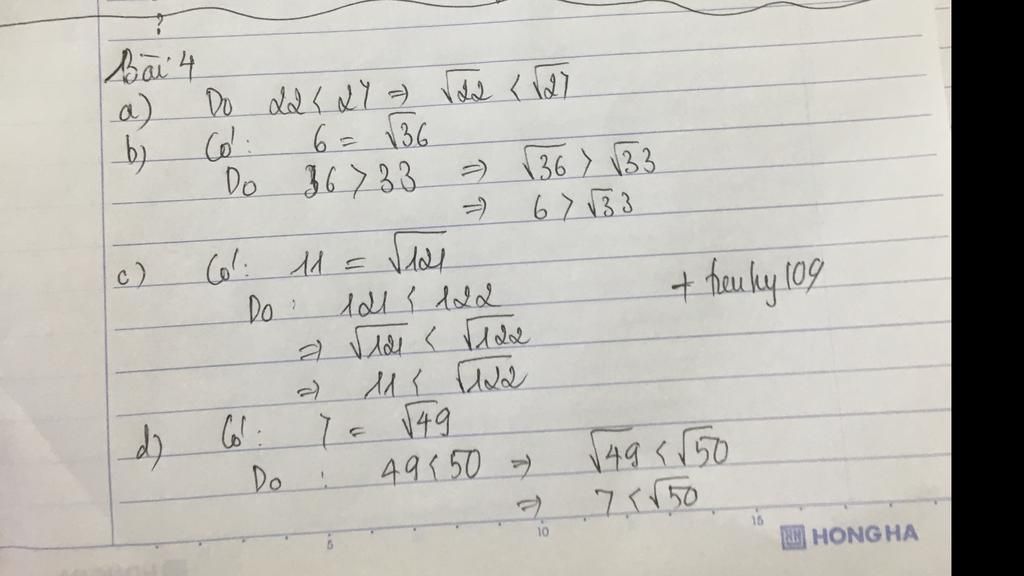 Bài 4
a) Do 22 < 27 => √22 < √27
b) Có: 6 = √36
Do 36 > 33 => √36 > √33
=> 6 > √33
c) Có: 11 = √121
Do : 121 < 122
+ tieuhy109
=> √121 < √122
=> 11 < √122
d) Có: 7 = √49
Do : 49 < 50 => √49 < √50
=> 7 < √50
5 10 15
HH HONG HA